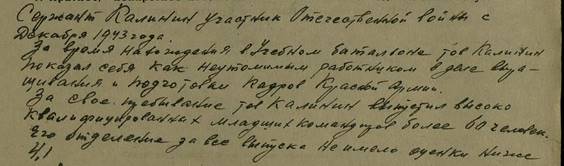 Сержант Калинин участник Отечественной войны с
Декабря 1943 года.
За время нахождения в Учебном баталионе тов Калинин
показал себя как неутомимым работником в деле выра-
щивания и подготовки кадров Красной Армии.
За свое пребывание тов Калинин выпустил высоко
квалифицированных младших командиров более 60 человек.
Его отделение за все выпуска не имело оценки ниже
4,1